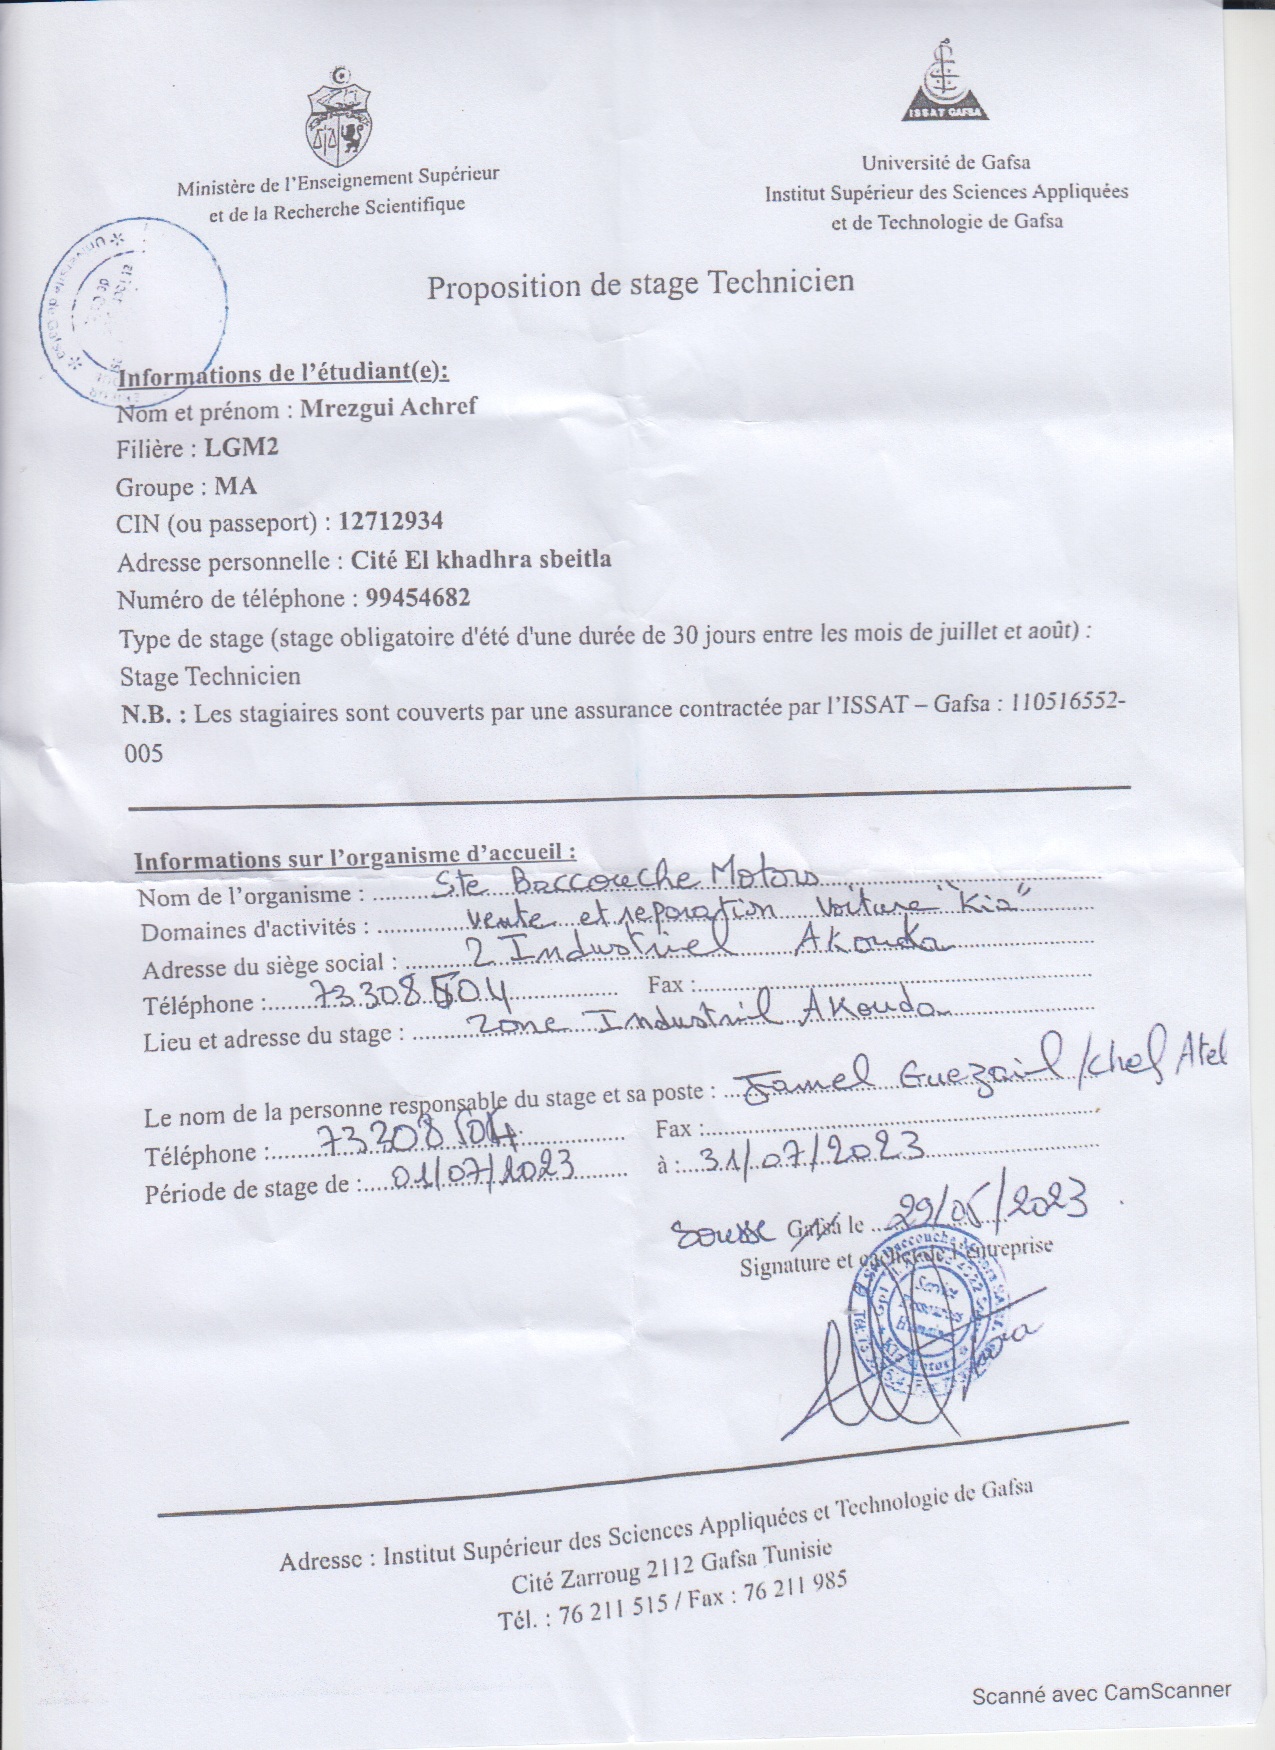 ISSAT GAFSA
Ministère de l'Enseignement Supérieur
et de la Recherche Scientifique
Université de Gafsa
Institut Supérieur des Sciences Appliquées
et de Technologie de Gafsa
Université de Gafsa
Proposition de stage Technicien
Informations de l'étudiant(e):
Nom et prénom : Mrezgui Achref
Filière : LGM2
Groupe : MA
CIN (ou passeport) : 12712934
Adresse personnelle : Cité El khadhra sbeitla
Numéro de téléphone : 99454682
Type de stage (stage obligatoire d'été d'une durée de 30 jours entre les mois de juillet et août) :
Stage Technicien
N.B. : Les stagiaires sont couverts par une assurance contractée par l'ISSAT – Gafsa : 110516552-
005
Informations sur l'organisme d'accueil :
Nom de l'organisme : Ste Baccouche Motors
Domaines d'activités : vente et reparation voiture "Kia"
Adresse du siège social : Z Industriel Akouda
Téléphone : 73 308 504 Fax :
Lieu et adresse du stage : Zone Industriil Akouda
Le nom de la personne responsable du stage et sa poste : Jamel Guezail / chef Atel
Téléphone : 73 308 504 Fax :
Période de stage de : 01/07/2023 à : 31/07/2023
Sousse Gafsa le 29/05/2023
Signature et cachet de l'entreprise
Service
Ressources
Humaines
Adresse : Institut Supérieur des Sciences Appliquées et Technologie de Gafsa
Cité Zarroug 2112 Gafsa Tunisie
Tél. : 76 211 515 / Fax : 76 211 985
Scanné avec CamScanner